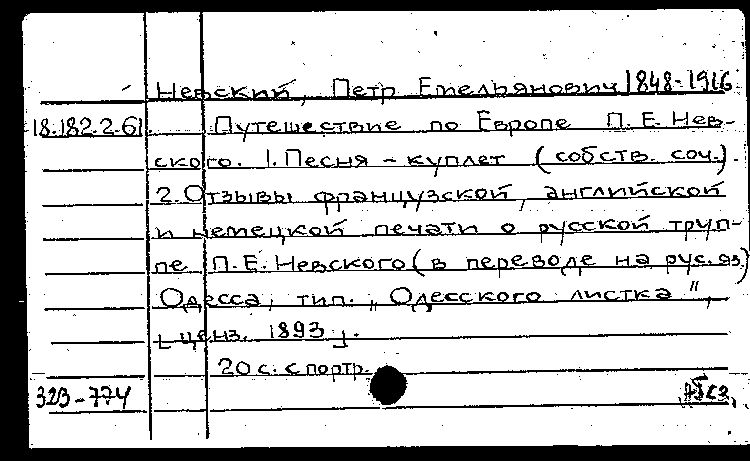 Невский, Петр Емельянович 1848-1916
18.182.2.61 Путешествие по Европе П. Е. Нев-
ского. 1. Песня - куплет (собств. соч.).
2. Отзывы французской, английской
и немецкой печати о русской труп-
пе П. Е. Невского (в переводе на рус. яз.)
Одесса, тип. „Одесского листка",
[ценз. 1893].
20 с. с портр.
323-774